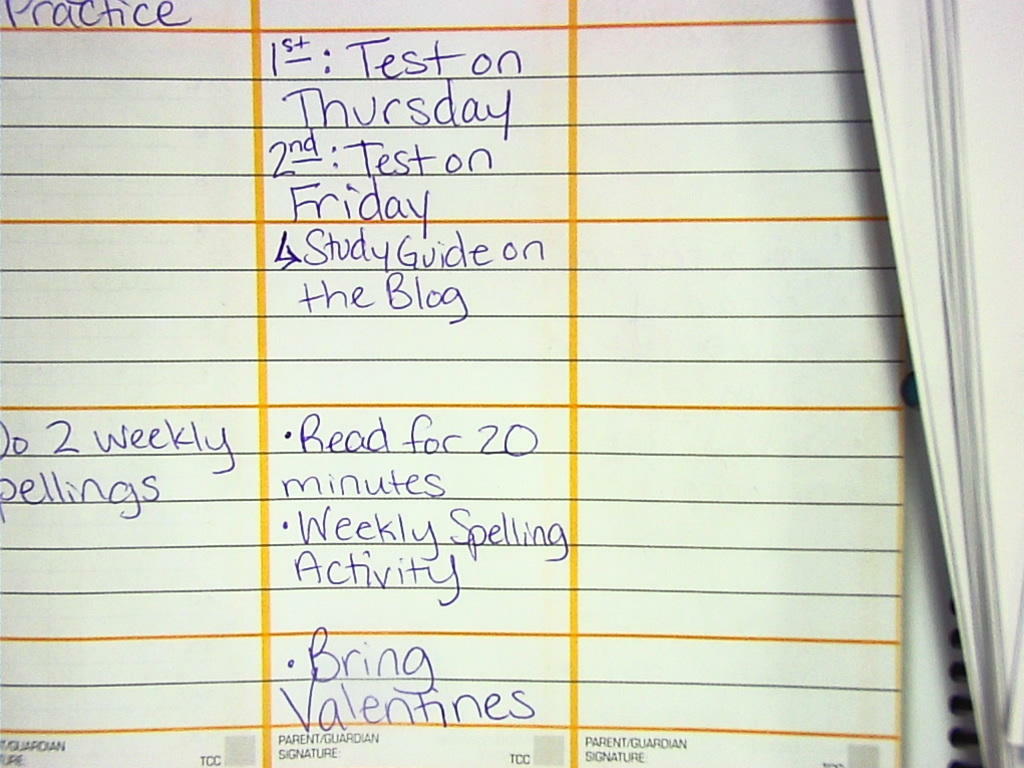 Practice
1st: Test on
Thursday
2nd: Test on
Friday
↳ Study Guide on
the Blog
Do 2 weekly
pellings
• Read for 20
minutes
• Weekly Spelling
Activity
• Bring
Valentines
T/GUARDIAN
URE:
TCC
PARENT/GUARDIAN
SIGNATURE:
TCC
PARENT/GUARDIAN
SIGNATURE: